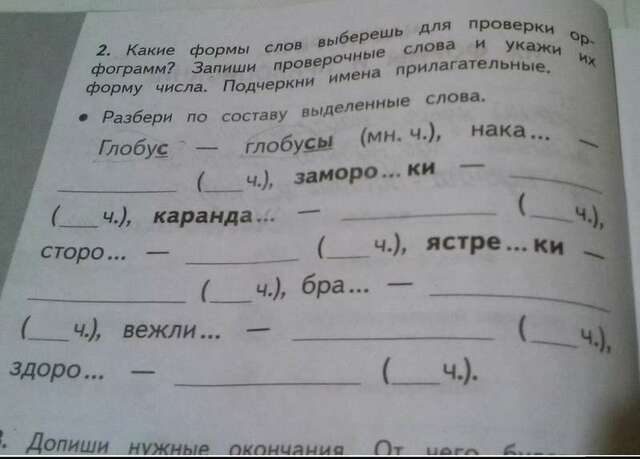 2. Какие формы слов выберешь для проверки ор-
фограмм? Запиши проверочные слова и укажи их
форму числа. Подчеркни имена прилагательные.
• Разбери по составу выделенные слова.
Глобус — глобусы (мн. ч.), нака... —
____________ (___ ч.), заморо...ки — __________
(___ ч.), каранда... — ________________ (___ ч.),
сторо... — ____________ (___ ч.), ястре...ки —
________________ (___ ч.), бра... — __________________
(___ ч.), вежли... — __________________ (___ ч.),
здоро... — __________________ (___ ч.).
3. Допиши нужные окончания. От чего